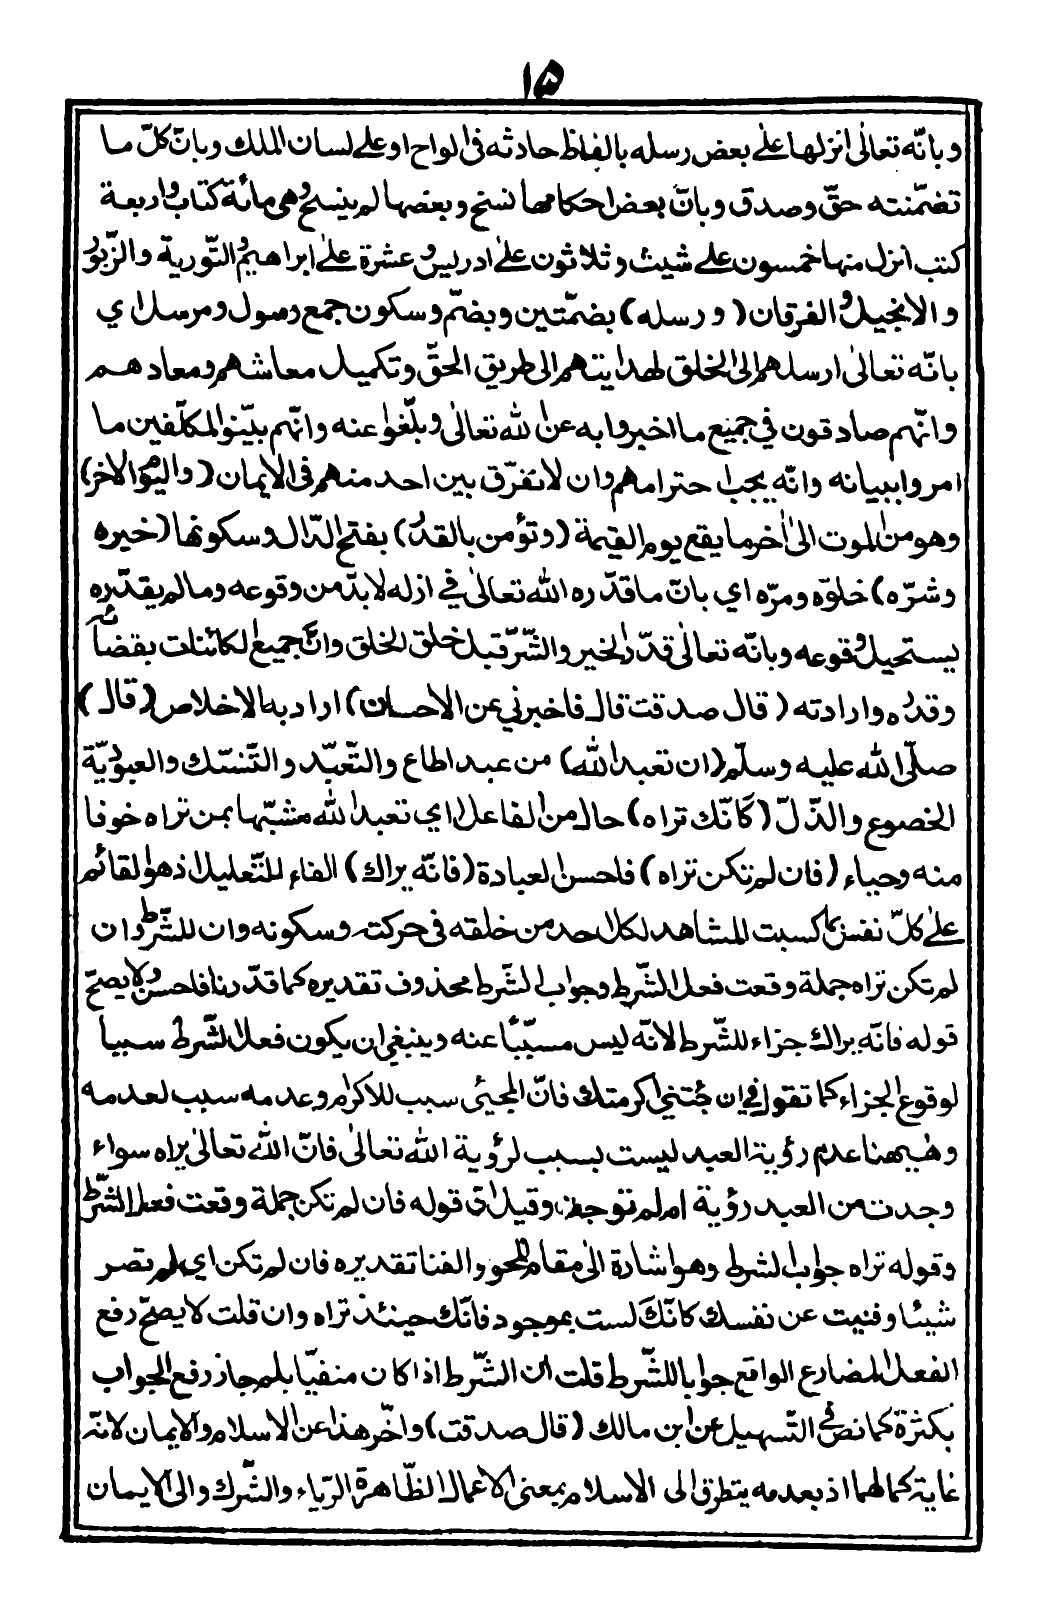 ١٥
وبانّه تعالىٰ انزلها علىٰ بعض رسله بالفاظ حادثه فى الواح او على لسان الملك وبانّ كلّ ما
تضمّنته حقّ وصدق وبانّ بعض احكامها نسخ وبعضها لم ينسخ وهى مائة كتاب واربعة
كتب انزل منها خمسون على شيث وثلاثون علىٰ ادريس وعشرة علىٰ ابراهيم والتّورية والزّبور
والانجيل والفرقان (ورسله) بضمّتين وبضمّ وسكون جمع رسول ومرسل اي
بانّه تعالىٰ ارسلهم الى الخلق لهدايتهم الى طريق الحقّ وتكميل معاشهم ومعادهم
وانّهم صادقون في جميع ما اخبروا به عن الله تعالىٰ وبلّغوا عنه وانّهم بيّنوا للمكلّفين ما
امروا ببيانه وانّه يجب احترامهم وان لا نفرّق بين احد منهم فى الايمان (واليوم الاخر)
وهو من الموت الىٰ اٰخر ما يقع يوم القيمة (وتؤمن بالقدر) بفتح الدّال وسكونها (خيره
وشرّه) حلوّه ومرّه اي بانّ ما قدّره الله تعالىٰ في ازله لا بدّ من وقوعه وما لم يقدّره
يستحيل وقوعه وبانّه تعالىٰ قدّر الخير والشّرّ قبل خلق الخلق وانّ جميع الكائنات بقضائه
وقدره وارادته (قال صدقت قال فاخبرني عن الاحسان) اراد به الاخلاص (قال)
صلّى الله عليه وسلّم (ان تعبد الله) من عبد اطاع والتّعبّد والتّنسّك والعبوديّة
الخضوع والذّلّ (كَانّك تراه) حال من الفاعل اي تعبد الله مشبّها بمن تراه خوفا
منه وحياء (فان لم تكن تراه) فاحسن العبادة (فانّه يراك) الفاء للتّعليل اذ هو القائم
علىٰ كلّ نفس بما كسبت المشاهد لكل احد من خلقه فى حركته وسكونه وان للشّرط وان
لم تكن تراه جملة وقعت فعل الشّرط وجواب الشّرط محذوف تقديره كما قدّرنا فاحسن ولا يصحّ
قوله فانّه يراك جزاء للشّرط لانّه ليس مسبّبًا عنه وينبغي ان يكون فعل الشّرط سببا
لوقوع الجزاء كما تقول في ان جئتني اكرمتك فانّ المجيئ سبب للاكرام وعدمه سبب لعدمه
وهٰيهنا عدم رؤية العبد ليست بسبب لرؤية الله تعالىٰ فانّ الله تعالىٰ يراه سواء
وجدت من العبد رؤية ام لم توجد وقيل انّ قوله فان لم تكن جملة وقعت فعل الشّرط
وقوله تراه جواب الشرط وهو اشارة الىٰ مقام المحو والفنا تقديره فان لم تكن اي لم تصر
شيئا وفنيت عن نفسك كانّكَ لست بموجود فانّك حينئذ تراه وان قلت لا يصحّ رفع
الفعل المضارع الواقع جوابا للشّرط قلت ان الشّرط اذا كان منفيّا بلم جاز رفع الجواب
بكثرة كما نص في التّسهيل عن ابن مالك (قال صدقت) واخّر هذا عن الاسلام والايمان لانّه
غاية كمالهما اذ بعدمه يتطرق الى الاسلام بمعنى الاعمال الظّاهرة الرّياء والشّرك والى الايمان